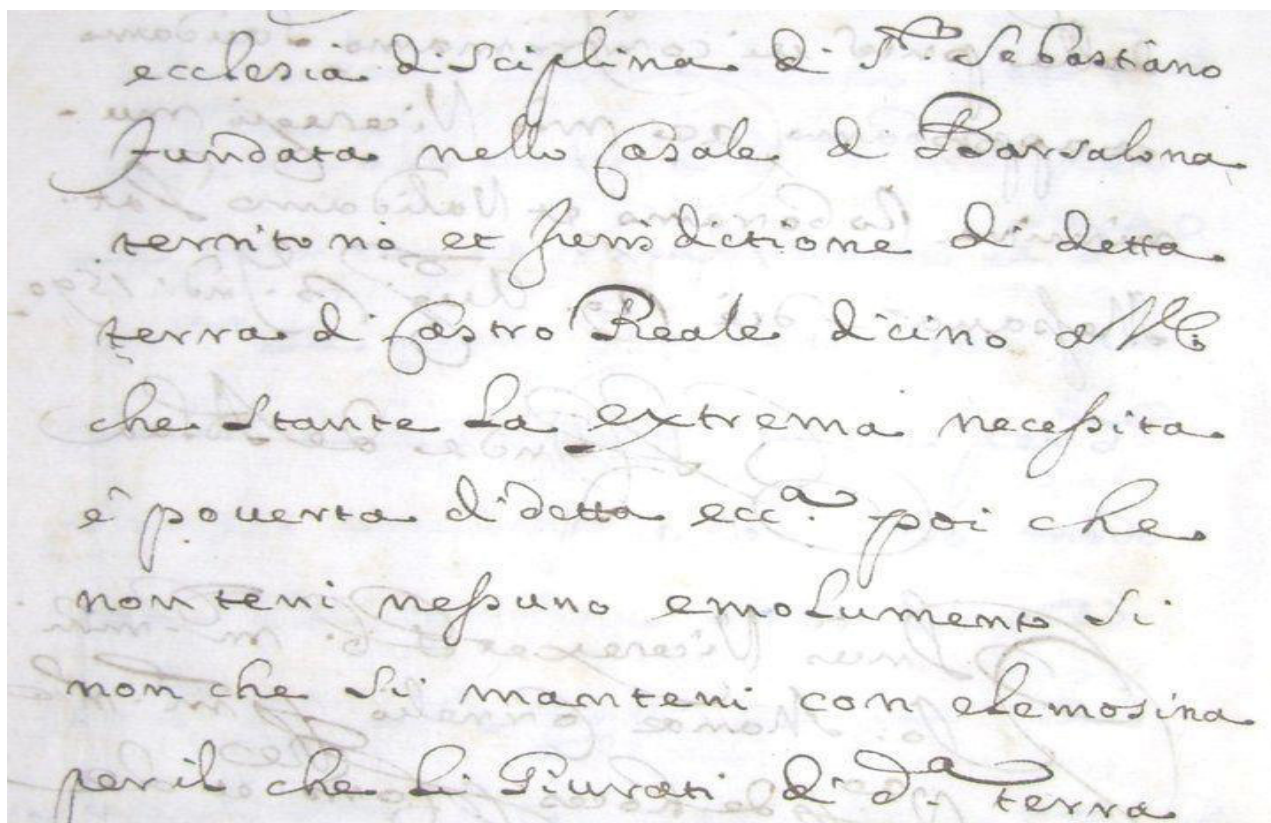 ecclesia di sciplina di S.to Sebastiano
fundata nello Casale di Barsalona
territorio et Jurisdictione di detta
terra di Castro Reale dicino a V.E.
che stante la extrema necessita
è pouerta di detta ecc.a poi che
non teni nessuno emolumento si
non che si manteni con elemosina
per il che li Giurati di d.a terra